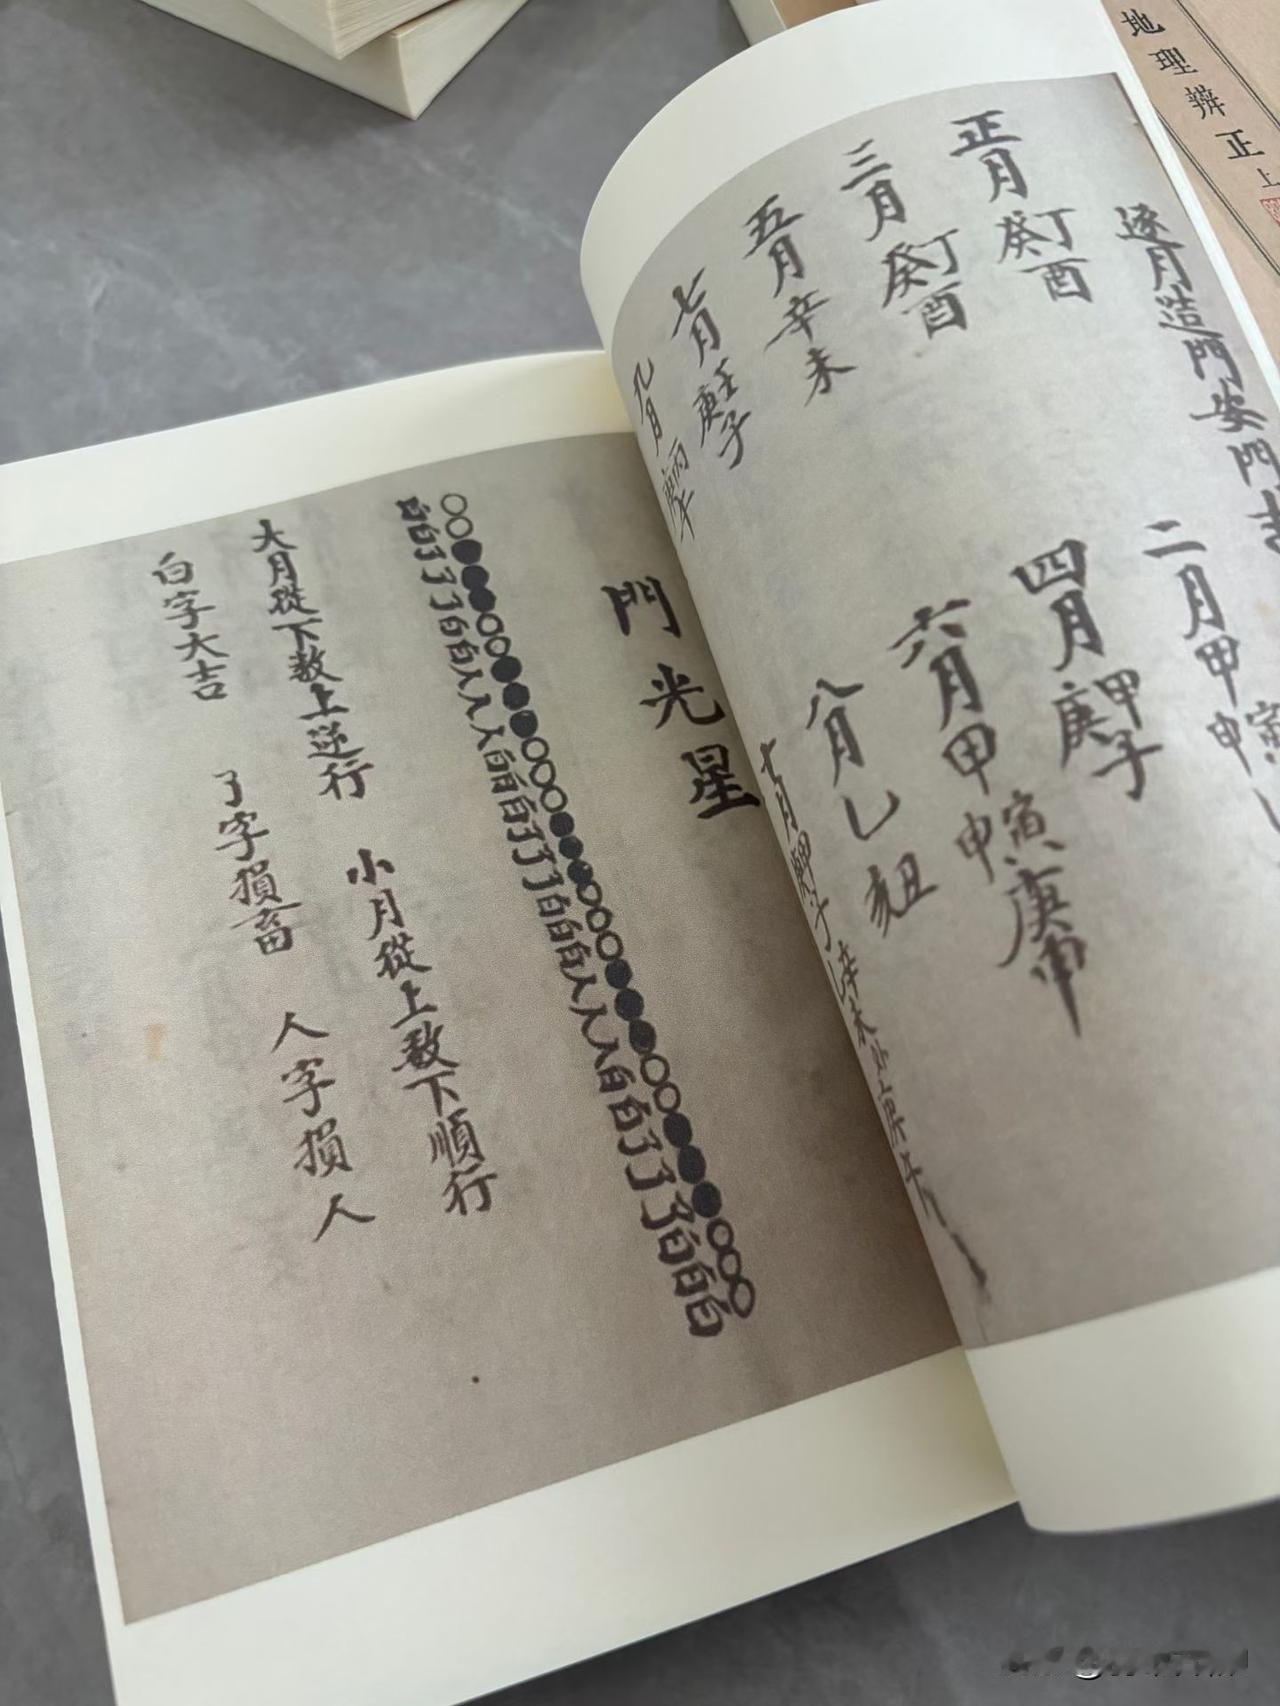 地理辨正上
逐月造門安門吉
正月 癸丁酉
二月甲寅申
三月 癸丁酉
四月甲子庚
五月辛未
六月甲寅申庚申
七月庚壬子
八月乙丑亥
九月丙
十月甲子辛未
門光星
○○●●●○○●●●○○○●●●○○○●●●○○●●●○○○
白白了了了白白人人人白白白了了了白白白人人人白白了了了白白白
大月從下数上逆行 小月從上数下順行
白字大吉 了字損畜 人字損人